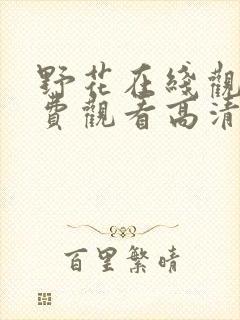 野花在綫觀
費觀看高清
百里繁晴